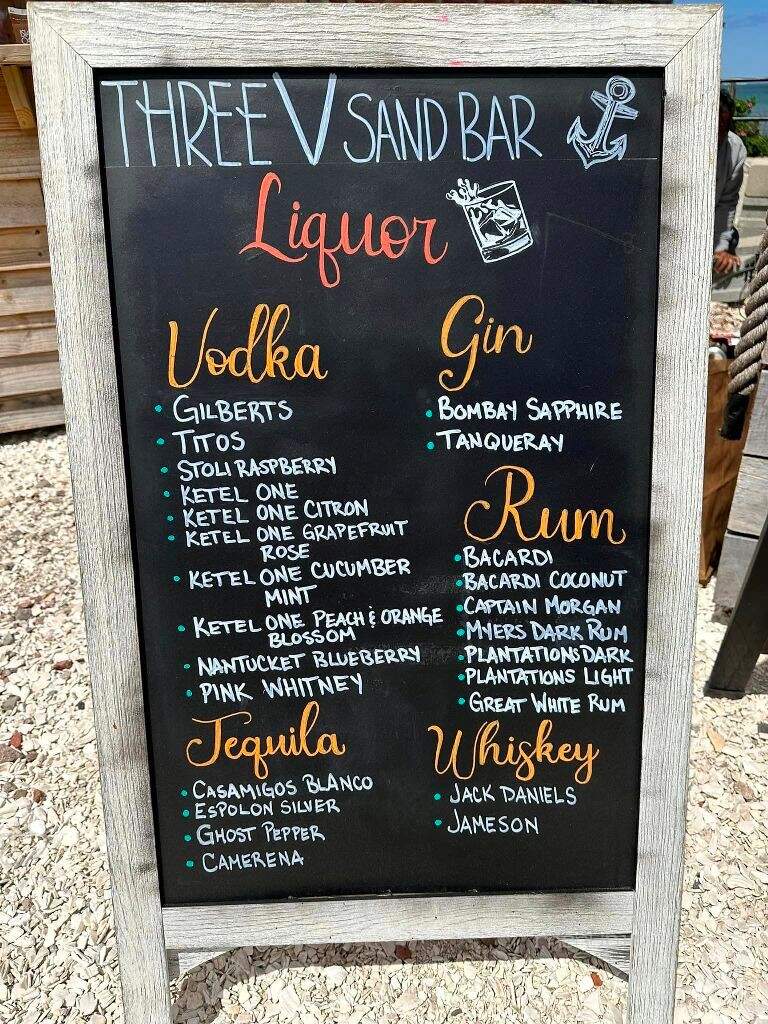 THREE V SAND BAR
Liquor
Vodka
• GILBERTS
• TITOS
• STOLI RASPBERRY
• KETEL ONE
• KETEL ONE CITRON
• KETEL ONE GRAPEFRUIT
ROSE
• KETEL ONE CUCUMBER
MINT
• KETEL ONE PEACH & ORANGE
BLOSSOM
• NANTUCKET BLUEBERRY
• PINK WHITNEY
Gin
• BOMBAY SAPPHIRE
• TANQUERAY
Rum
• BACARDI
• BACARDI COCONUT
• CAPTAIN MORGAN
• MYERS DARK RUM
• PLANTATIONS DARK
• PLANTATIONS LIGHT
• GREAT WHITE RUM
Tequila
• CASAMIGOS BLANCO
• ESPOLON SILVER
• GHOST PEPPER
• CAMERENA
Whiskey
• JACK DANIELS
• JAMESON